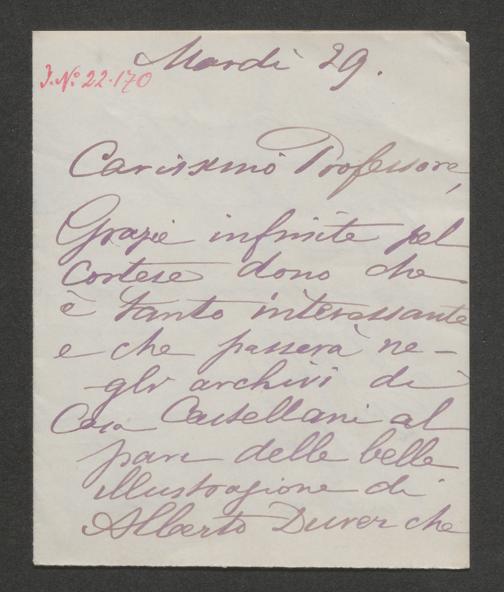 Mardi 29.
J. No. 22-170
Carissimo Professore,
Grazie infinite pel
cortese dono che
è tanto interessante
e che passerà ne-
gli archivi di
Casa Castellani al
pari delle belle
illustrazione di
Alberto Durer che